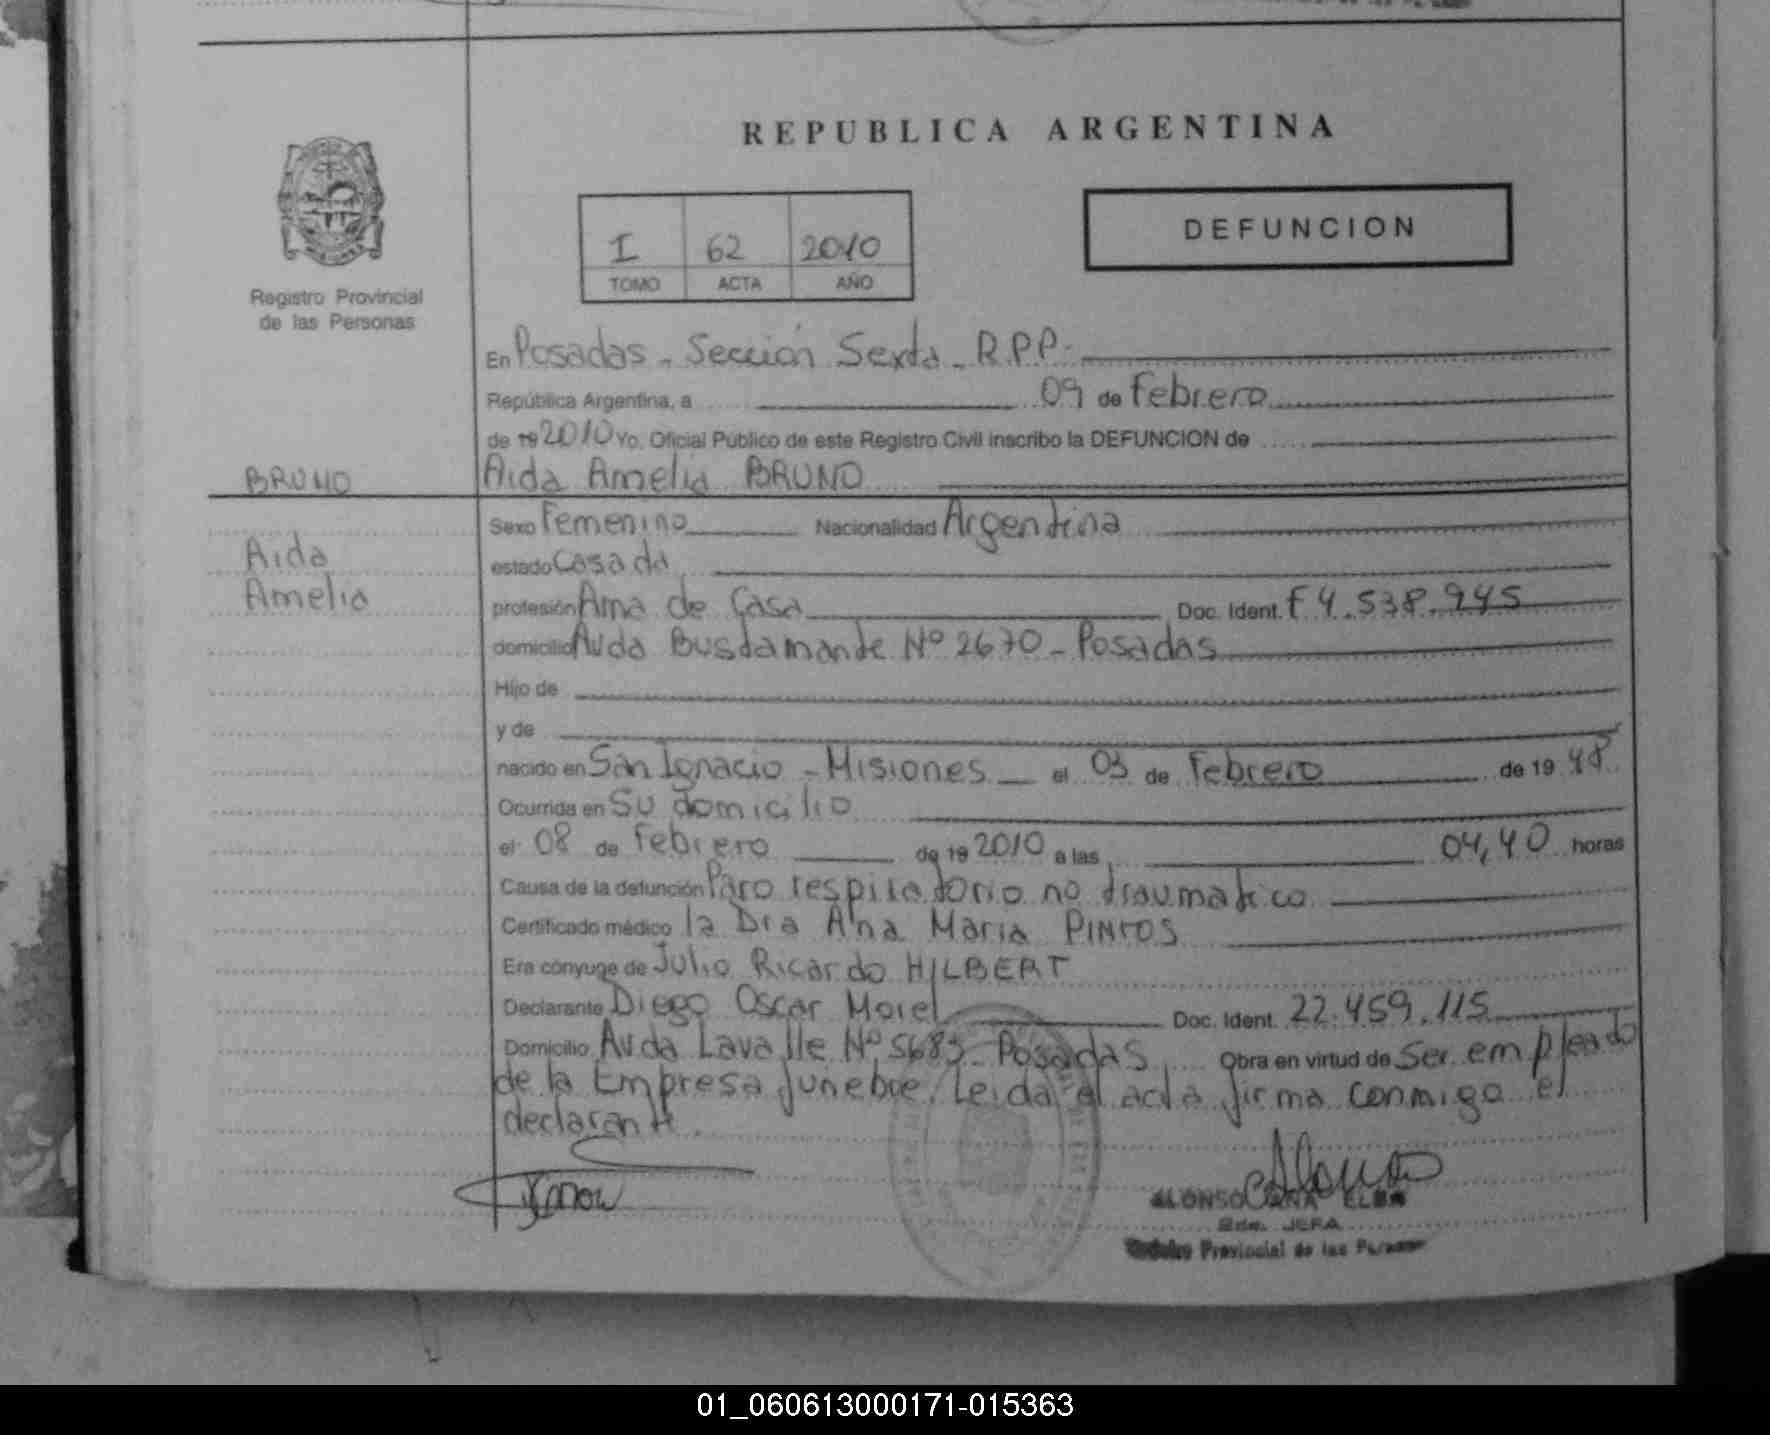 REPUBLICA ARGENTINA
Registro Provincial
de las Personas
I 62 2010
TOMO ACTA AÑO
DEFUNCION
En Posadas - Sección Sexta - R.P.P.
República Argentina, a 09 de Febrero
de 19 2010 Yo, Oficial Público de este Registro Civil inscribo la DEFUNCION de
BRUNO
Aida Amelia BRUNO
Aida
Amelia
Sexo Femenino Nacionalidad Argentina
estado Casada
profesión Ama de Casa Doc. Ident. F 4.538.945
domicilio Avda Bustamante Nº 2670 - Posadas
Hijo de
y de
nacido en San Ignacio - Misiones el 03 de Febrero de 19 48
Ocurrida en Su domicilio
el 08 de Febrero de 19 2010 a las 04,40 horas
Causa de la defunción Paro respiratorio no traumatico
Certificado médico la Dra Ana Maria PINTOS
Era cónyuge de Julio Ricardo HILBERT
Declarante Diego Oscar Morel Doc. Ident. 22.459.115
Domicilio Avda Lavalle Nº 5683 - Posadas Obra en virtud de Ser empleado
de la Empresa funebre. Leida el acta firma conmigo el
declarante.
ALONSO ELBA
JEFA
Provincial de las
01_060613000171-015363